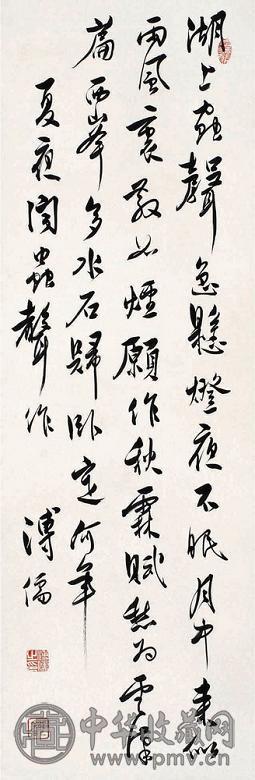 湖上蟲聲急懸燈夜不眠月中來似
雨風裏散如煙願作秋霖賦愁為雲漢
篇西峯多水石歸臥定何年
夏夜聞蟲聲作
溥儒
中华收藏网
www.pmv.cn